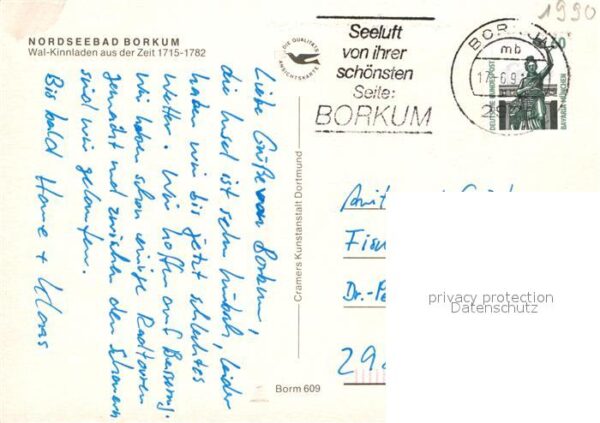 1990
NORDSEEBAD BORKUM
Wal-Kinnladen aus der Zeit 1715-1782
DIE QUALITÄTS
ANSICHTSKARTE
Seeluft
von ihrer
schönsten
Seite:
BORKUM
BORKUM
mb
17.-6.9
29
DEUTSCHE BUNDESPOST
BAVARIA MÜNCHEN
Liebe Grüße von Borkum,
die Insel ist sehr hübsch, leider
haben wir bis jetzt schlechtes
Wetter. Wir hoffen auf Besserung.
Wir haben schon einige Radtouren
gemacht und zwischen den Schauern
sind wir gelaufen.
Bis bald
Cramers Kunstanstalt Dortmund
Borm 609
Dr.-
29
privacy protection
Datenschutz